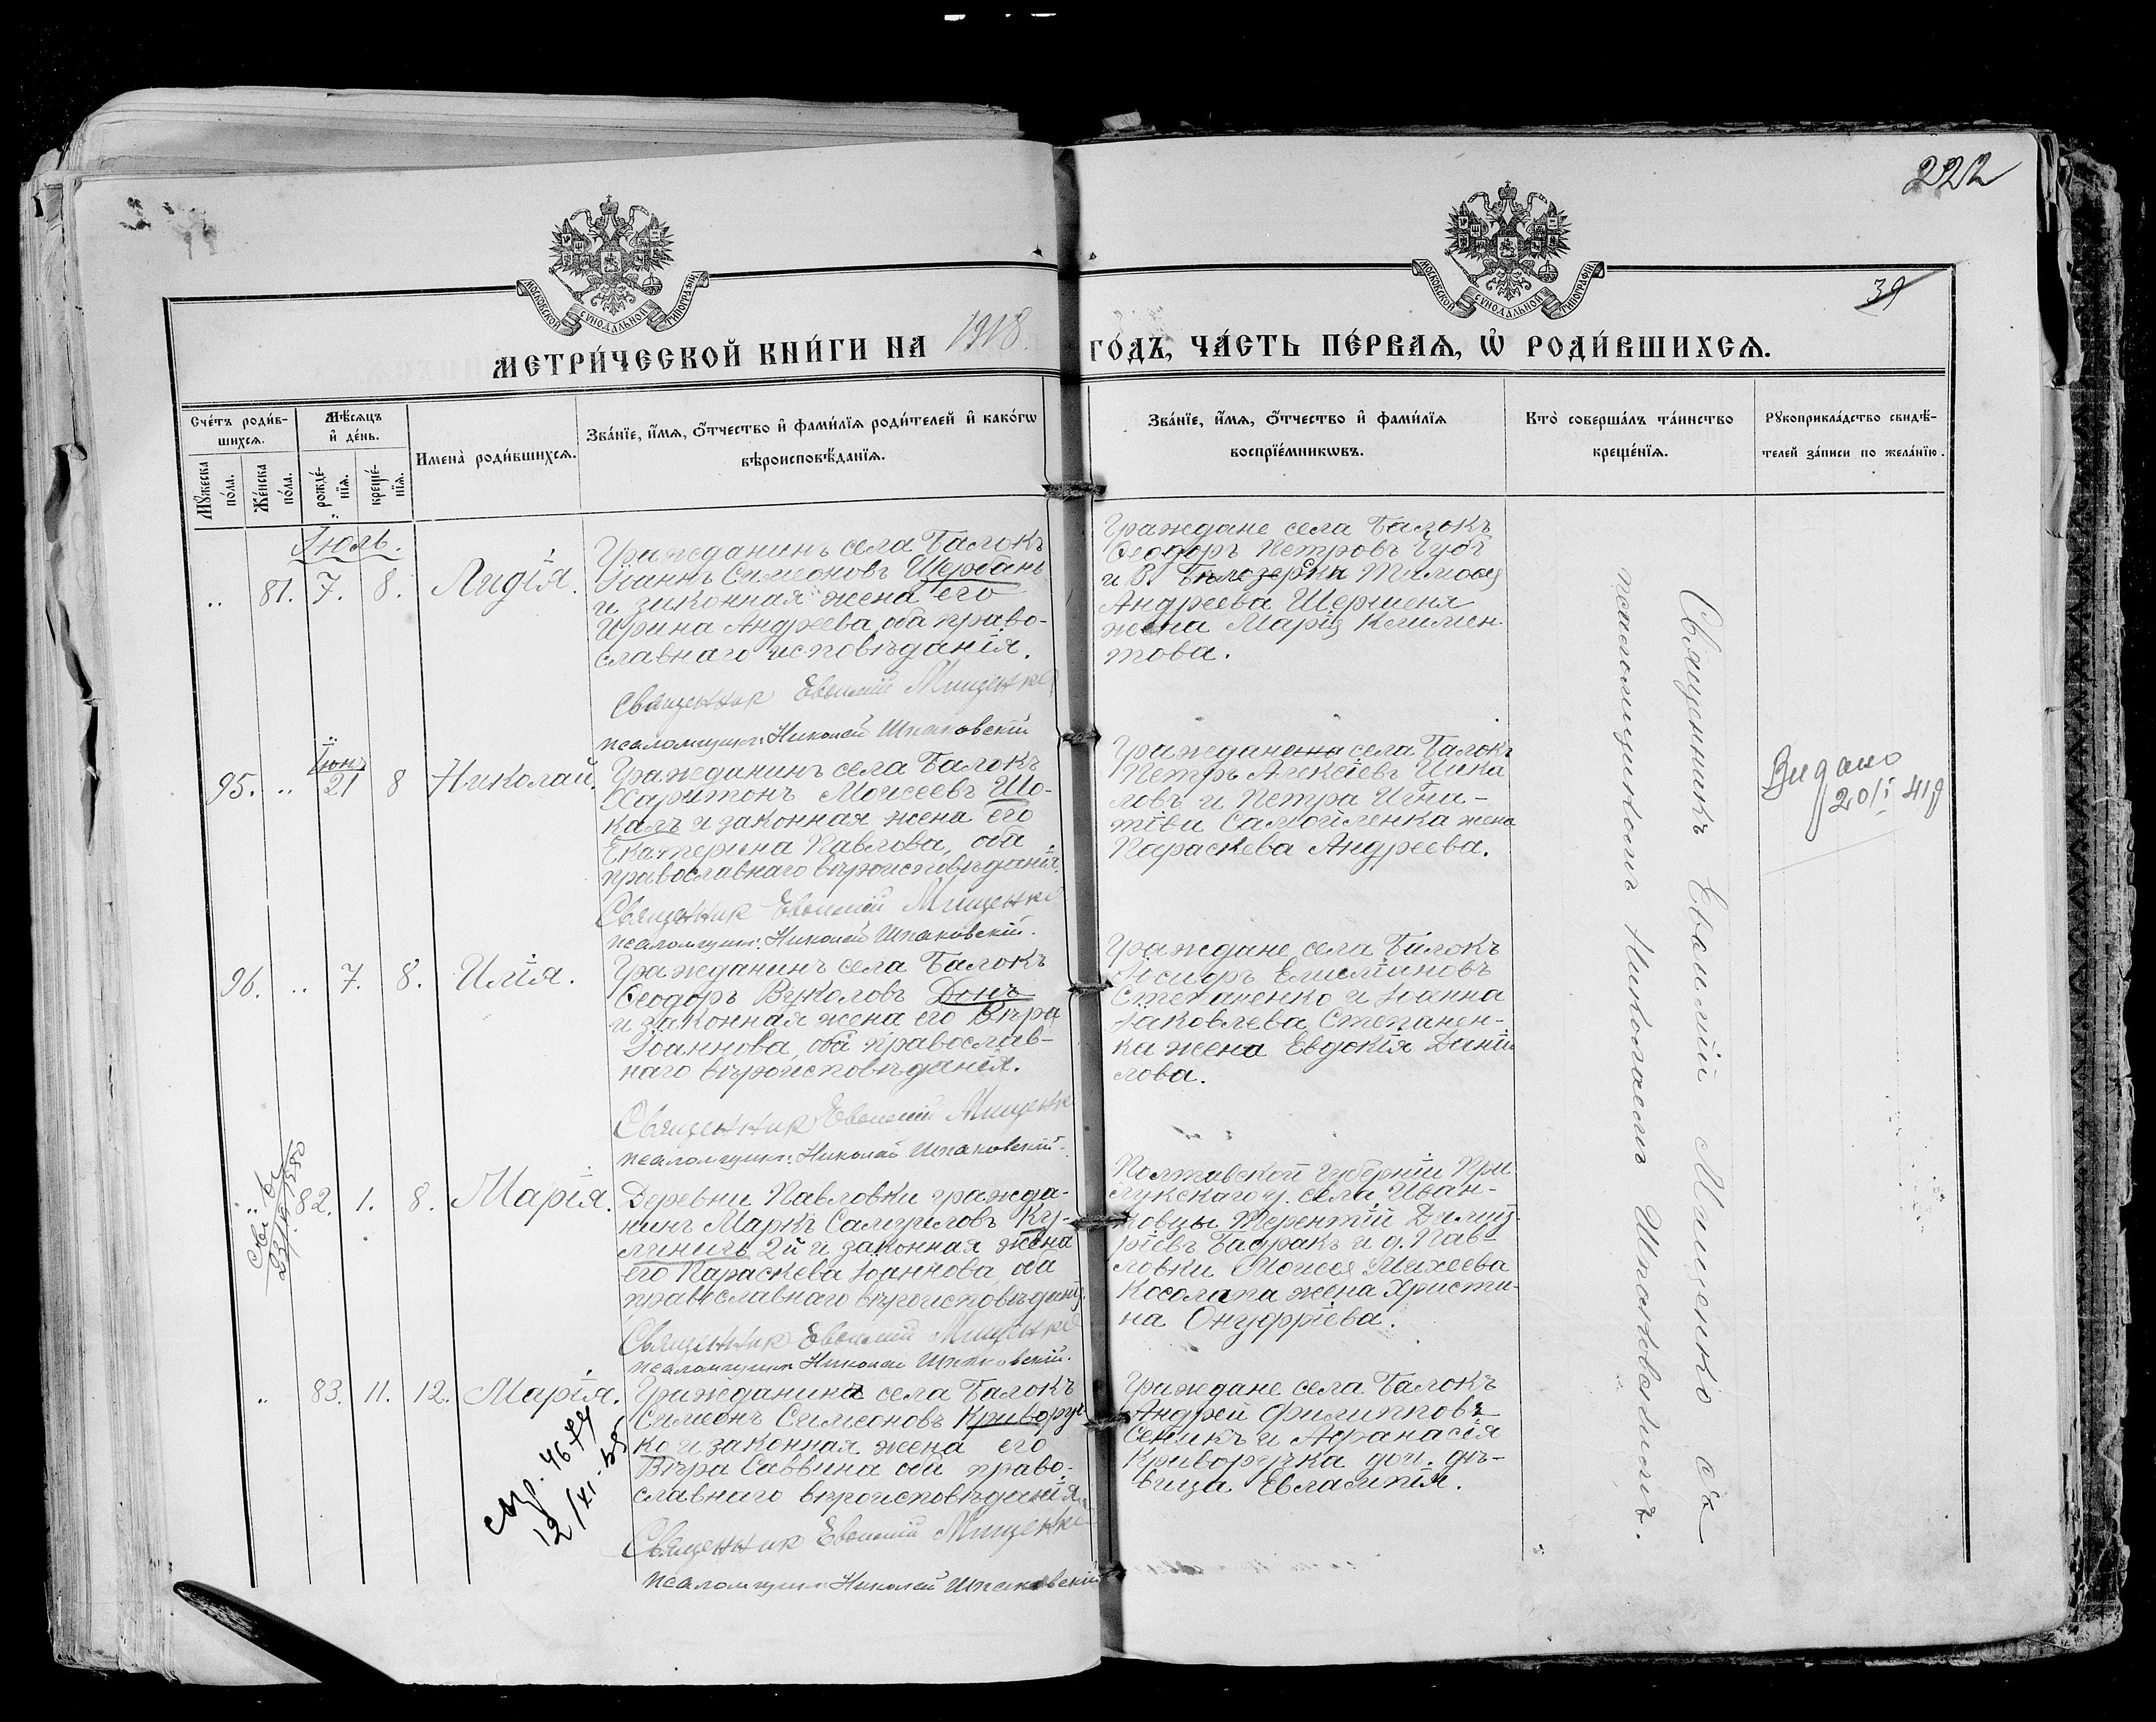 222
39
МОСКОВСКОЙ СѴНОДАЛЬНОЙ ТИПОГРАФІИ
МОСКОВСКОЙ СѴНОДАЛЬНОЙ ТИПОГРАФІИ
МЕТРИ́ЧЕСКОЙ КНИ́ГИ НА 1918. ГО́ДЪ, ЧА́СТЬ ПЕ́РВАѦ, Ѡ҆ РОДИ́ВШИХСѦ.
Сче́тъ роди́в-
шихсѧ.
Мꙋ́жеска
по́ла.
Же́нска
по́ла.
Мѣ́сѧцъ
и҆ де́нь.
рожде́-
нїѧ.
креще́-
нїѧ.
И҆мена̀ роди́вшихсѧ.
Зва́нїе, и҆́мѧ, ѻ҆́тчество и҆ фами́лїѧ роди́телей и҆ како́гѡ
вѣроисповѣ́данїѧ.
Зва́нїе, и҆́мѧ, ѻ҆́тчество и҆ фами́лїѧ
воспрїе́мникѡвъ.
Кто̀ соверша́лъ та́инство
креще́нїѧ.
Рꙋкоприкла́дство свидѣ́-
телей за́писи по жела́нїю.
Іюль.
„ 81. 7. 8. Лидія.
Гражданинъ села Балокъ
Іоаннъ Симеоновъ Щербань
и законная жена его
Ирина Андреева, оба право-
славнаго исповѣданія.
Священник Евѳимій Мищенко
псаломщикъ Николай Шпаковскій
Граждане села Балокъ
Ѳеодоръ Петровъ Чубъ
и В. Бѣлозерки Тимоѳея
Андреева Шершеня
жена Марія Климен-
това.
Іюнь
95. „ 21 8 Николай.
Гражданинъ села Балокъ
Харитонъ Моисеевъ Шо-
калъ и законная жена его
Екатерина Павлова, оба
православнаго вѣроисповѣданія.
Священник Евѳимій Мищенко
псаломщикъ Николай Шпаковскій.
Граждане села Балокъ
Петръ Алексіевъ Шка
ловъ и Петра Игна-
тіева Самойленка жена
Параскева Андреева.
Видано
20/I 41 р
96. „ 7. 8. Илія.
Гражданинъ села Балокъ
Ѳеодоръ Вуколовъ Донъ
и законная жена его Вѣра
Іоаннова, оба православ-
наго вѣроисповѣданія.
Священник Евѳимій Мищенко
псаломщикъ Николай Шпаковскій.
Граждане села Балокъ
Іосифъ Емиліановъ
Степаненко и Іоанна
Іаковлева Степанен-
ка жена Евдокія Даніи
лова.
„ 82. 1. 8. Марія.
Деревни Павловки гражда-
нинъ Маркъ Самуиловъ Ку-
линичъ 2й и законная жена
его Параскева Іоаннова, оба
православнаго вѣроисповѣданія.
Священник Евѳимій Мищенко
псаломщикъ Николай Шпаковскій.
Полтавской губерніи При
лукскаго у. села Иван-
ковцы Терентій Димит-
ріевъ Бадракъ и д. Пав-
ловки Моисея Михеева
Косолапа жена Христи-
на Онуфріева.
„ 83. 11. 12. Марія.
12/XI
Гражданинъ села Балокъ
Симеонъ Симеоновъ Криворуч
ко и законная жена его
Вѣра Саввина оба право-
славнаго вѣроисповѣданія.
Священник Евѳимій Мищенко
псаломщикъ Николай Шпаковскій
Граждане села Балокъ
Андрей Филипповъ
Сеникъ и Аѳанасія
Криворучка доч. дѣ-
вица Евлампія.
Священникъ Евѳимій Мищенко съ
псаломщикомъ Николаемъ Шпаковскимъ.